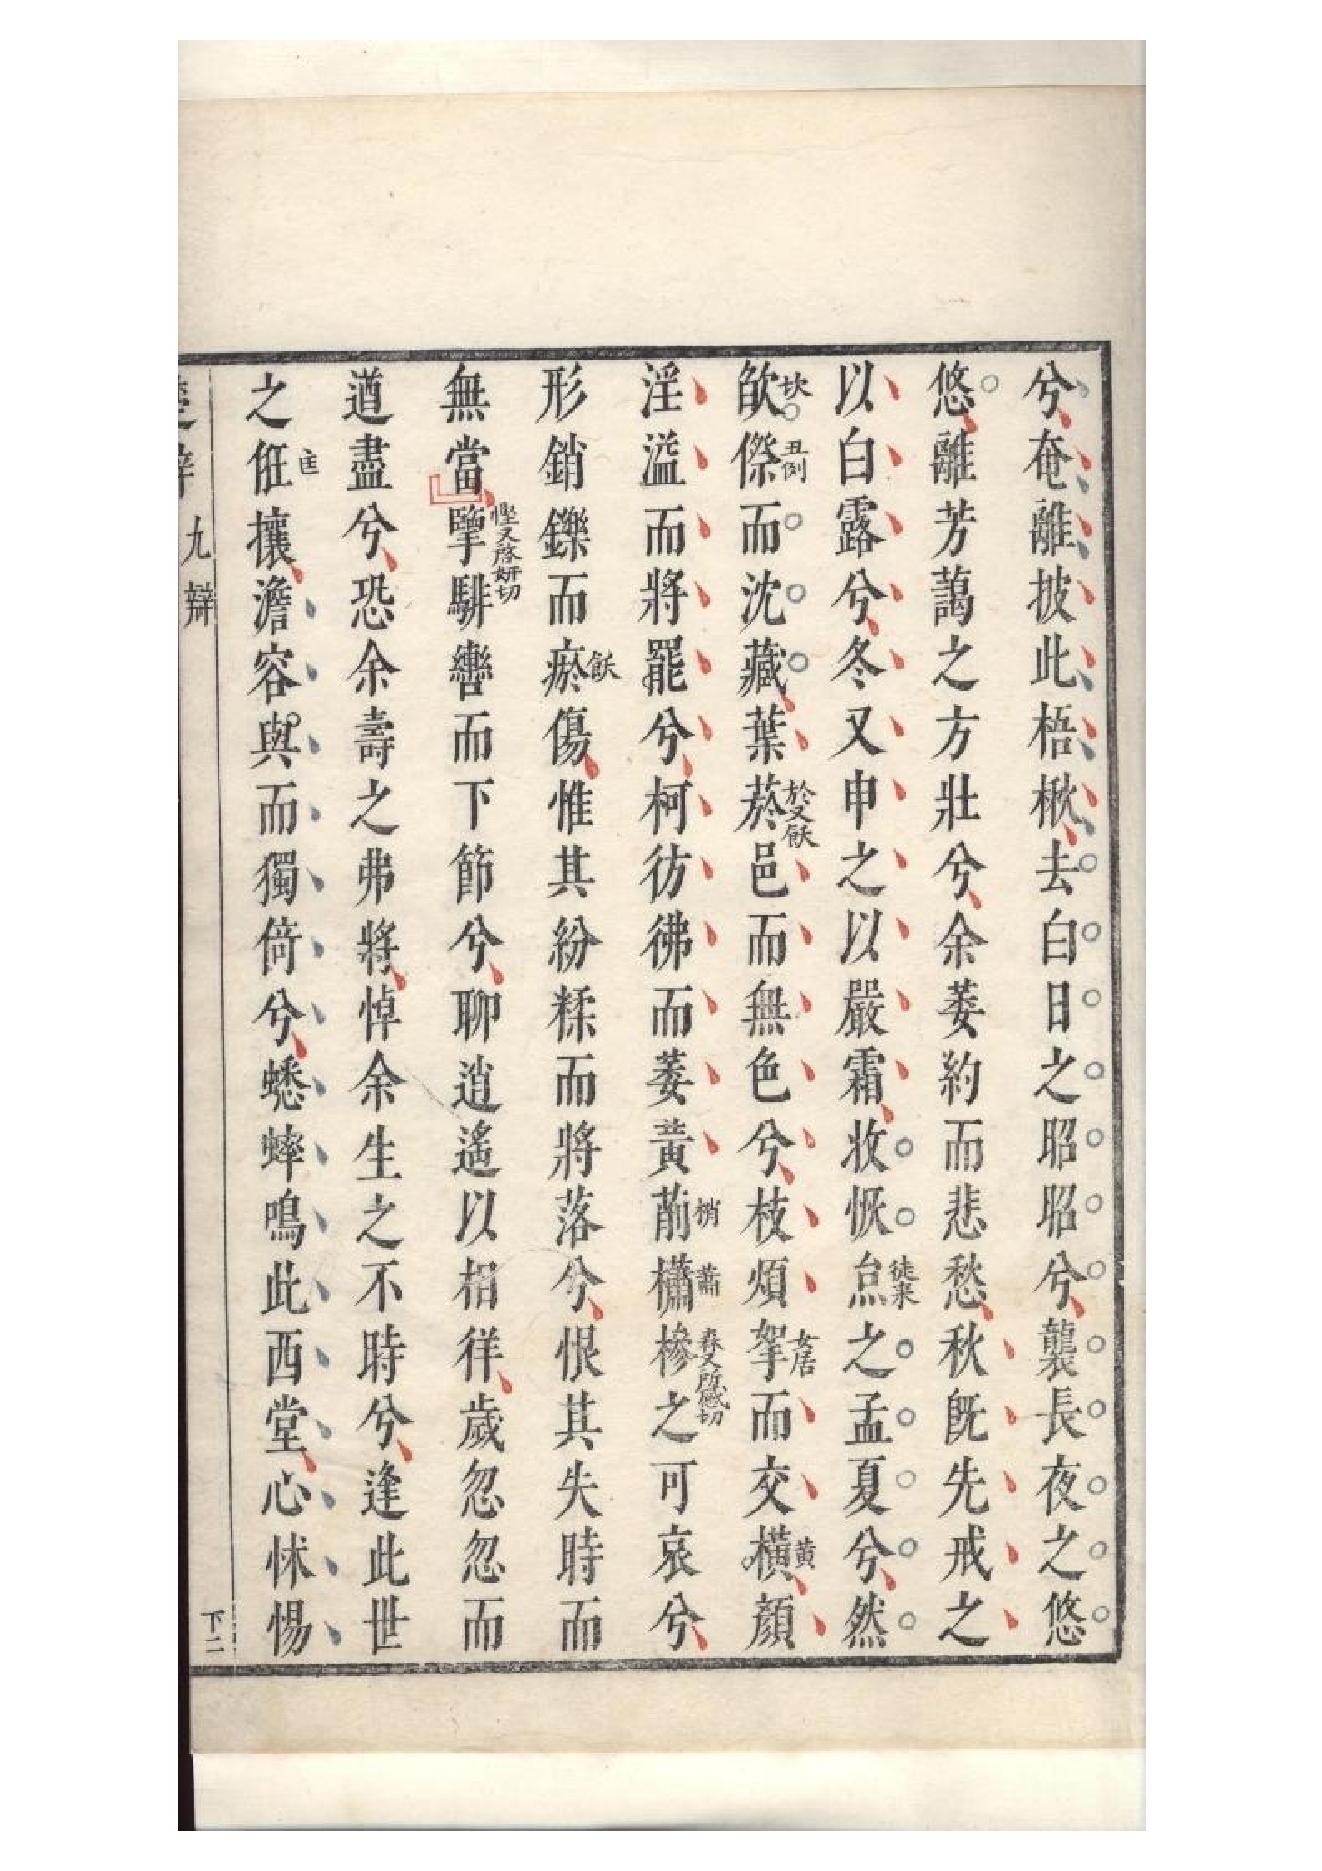 兮奄離披此梧楸去白日之昭昭兮襲長夜之悠
悠離芳藹之方壯兮余萎約而悲愁秋旣先戒之
以白露兮冬又申之以嚴霜收恢炱徒來之孟夏兮然
欿坎傺丑例而沈藏葉菸於又𩚳邑而無色兮枝煩挐女居而交橫黃顏
淫溢而將罷兮柯彷彿而萎黃萷梢櫹蕭槮森又所感切之可哀兮
形銷鑠而瘀𩚳傷惟其紛糅而將落兮恨其失時而
無當擥慳又啓妍切騑轡而下節兮聊逍遙以相徉歲忽忽而
遒盡兮恐余壽之弗將悼余生之不時兮逢此世
之俇匡攘澹容與而獨倚兮蟋蟀鳴此西堂心怵惕
楚辭 九辯 下二